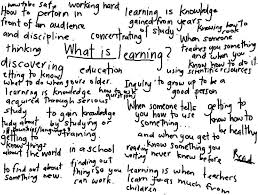 how to be safe working hard
How to perform in
front of an audience
and discipline
thinking
learning is knowledge
gained from years of
concentrating study
Knowing how to
cook
When someone
teaches you something
and when you
know how to do it.
What is learning?
discovering
education
using scientific resources
getting to know
what to do when your older.
Inquiry
to grow up to be a
good person
learning is knowledge
acquired through serious
study
how to ask questions
to gain knowledge
by studying
or training.
When someone tells
you how to use
something
and when you get to
know something you
never knew before
getting to
know how to
be healthy
Study about
getting to
know things
about the world
in a school
writing
Read
to find out about
something new.
finding out
things so you
can work.
learning is when teachers
learn things much from
children